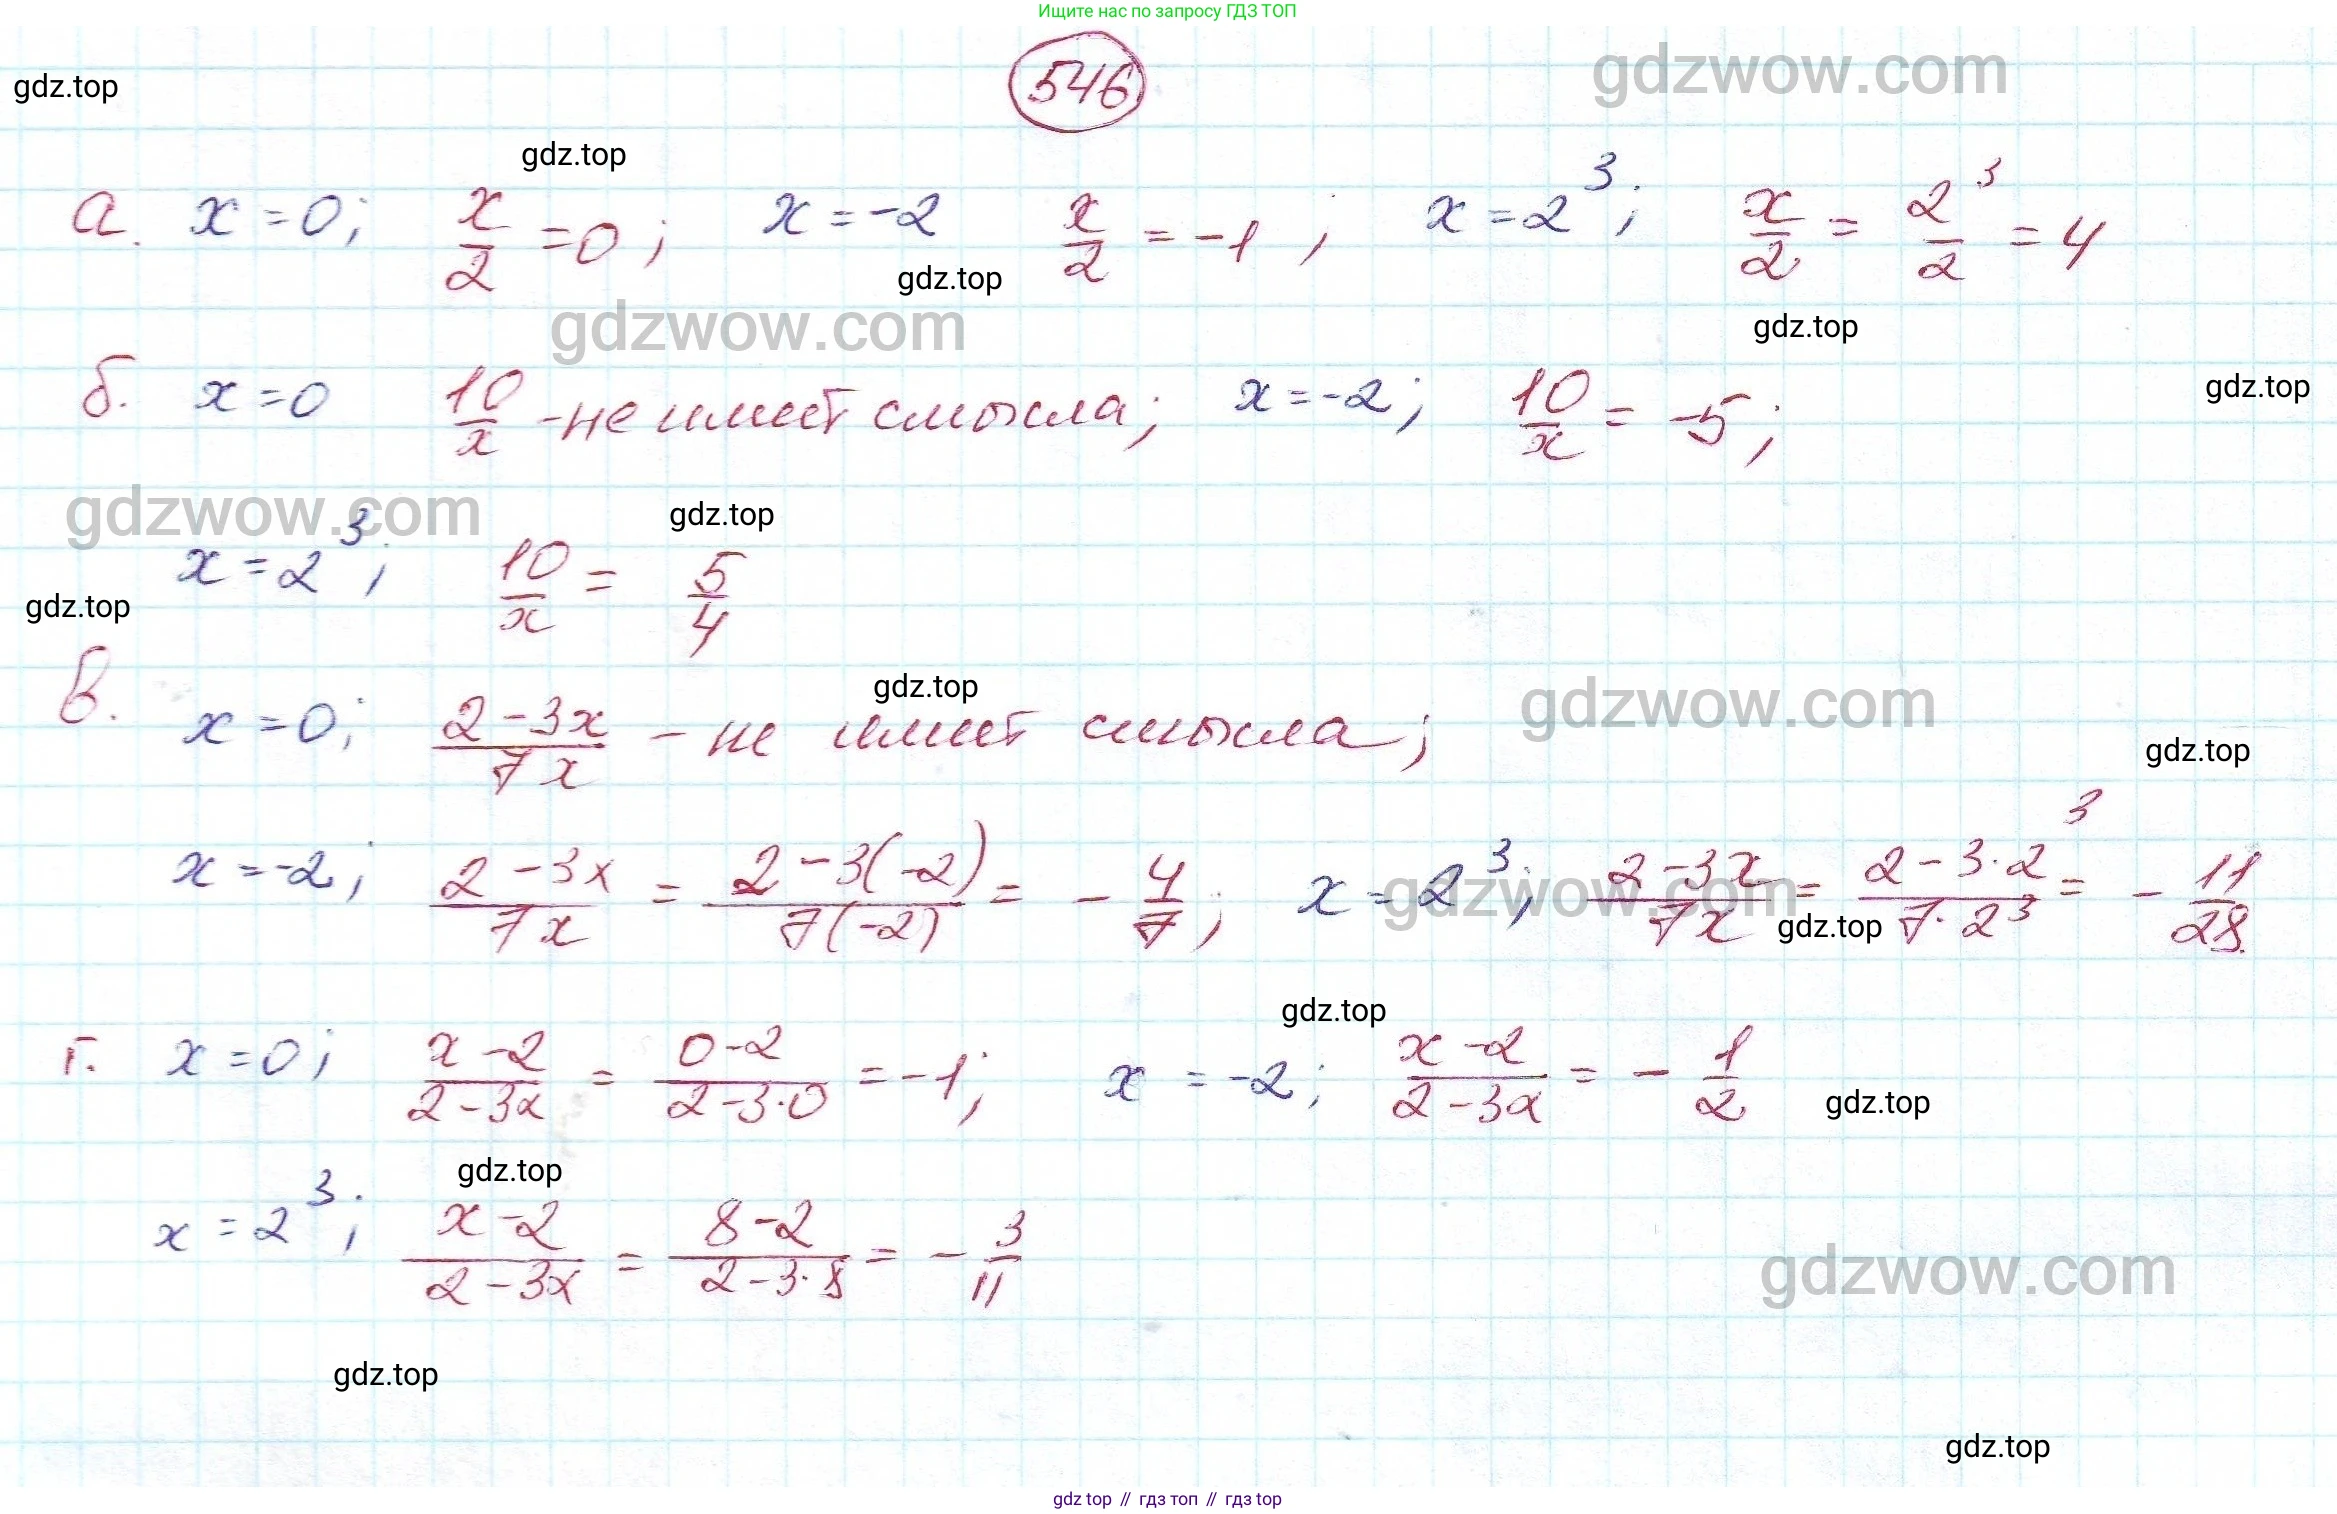 Ищите нас по запросу ГДЗ ТОП
546
gdzwow.com
gdz.top
gdz.top
а. x = 0; x/2 = 0; x = -2 x/2 = -1; x = 2³; x/2 = 2³/2 = 4
gdz.top
gdzwow.com
gdz.top
б. x = 0 10/x - не имеет смысла; x = -2; 10/x = -5;
gdz.top
gdzwow.com
gdz.top
x = 2³; 10/x = 5/4
gdz.top
gdz.top
gdzwow.com
в. x = 0; (2-3x)/(7x) - не имеет смысла;
gdz.top
x = -2; (2-3x)/(7x) = (2-3(-2))/(7(-2)) = -4/7; x = 2³; (2-3x)/(7x) = (2-3·2³)/(7·2³) = -11/28.
gdzwow.com
gdz.top
gdz.top
г. x = 0; (x-2)/(2-3x) = (0-2)/(2-3·0) = -1; x = -2; (x-2)/(2-3x) = -1/2
gdz.top
gdz.top
x = 2³; (x-2)/(2-3x) = (8-2)/(2-3·8) = -3/11
gdzwow.com
gdz.top
gdz.top
gdz top // гдз топ // гдз top